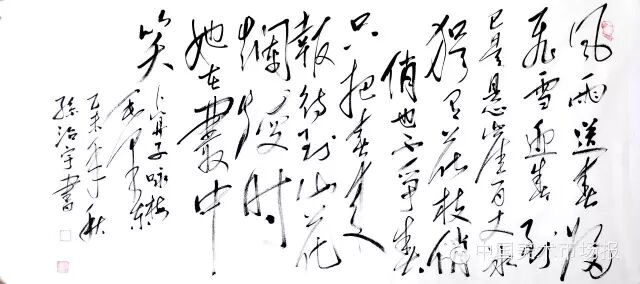 風雨送春归
飛雪迎春到
已是悬崖百丈冰
犹有花枝俏
俏也不争春
只把春来
報待到山花
爛漫时
她在叢中
笑
卜算子咏梅
毛泽东
乙未年秋
孫治宇書
中国美术市场报